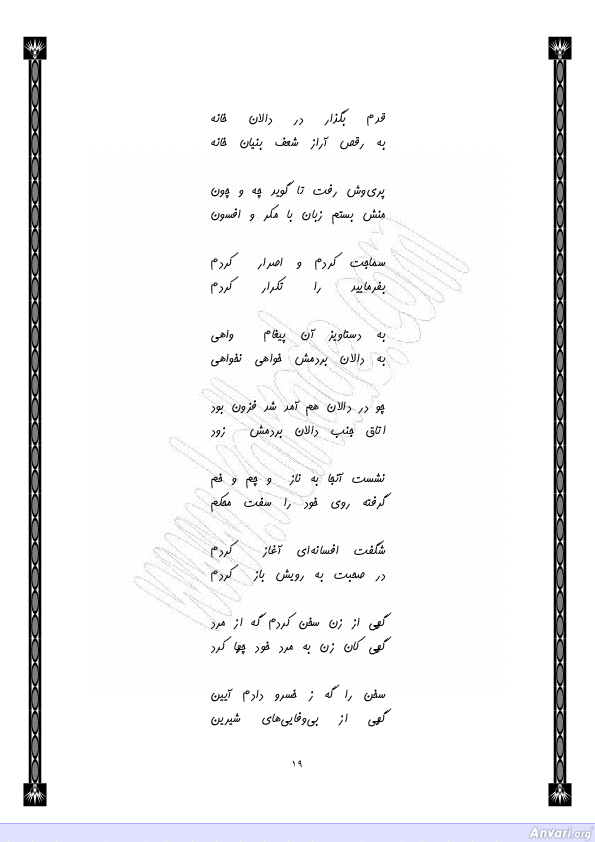 قدم بگذار در دالان خانه
به رقص آراز شعف بنیان خانه
پری‌وش رفت تا گوید چه و چون
منش بستم زبان با مکر و افسون
سماجت کردم و اصرار کردم
بفرمایید را تکرار کردم
به دستاویز آن پیغام واهی
به دالان بردمش خواهی نخواهی
چو در دالان هم آمد شد فزون بود
اتاق جنب دالان بردمش زود
نشست آنجا به ناز و چم و خم
گرفته روی خود را سفت محکم
شگفت افسانه‌ای آغاز کردم
در صحبت به رویش باز کردم
گهی از زن سخن کردم که از مرد
گهی کان زن به مرد خود چها کرد
سخن را گه ز خسرو دادم آیین
گهی از بی‌وفایی‌های شیرین
۱۹
www.kalhods.com
Anvari.org